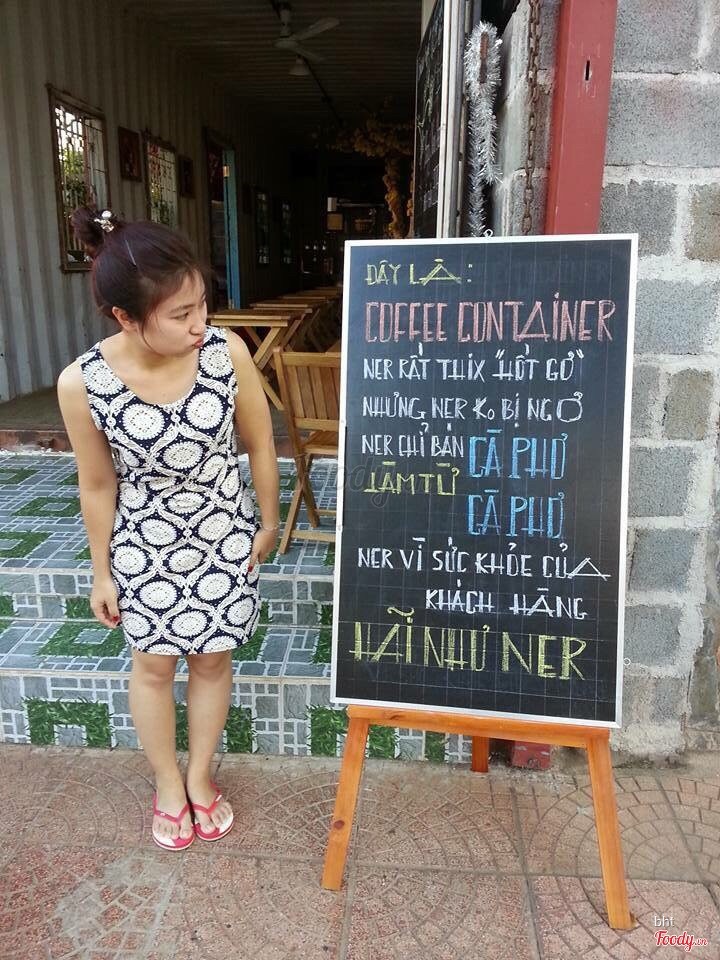 ĐÂY LÀ:
COFFEE CONTAINER
NER RẤT THIX "HỐT GƠ"
NHƯNG NER Ko BỊ NGƠ
NER CHỈ BÁN CÀ PHƠ
LÀM TỪ CÀ PHƠ
NER VÌ SỨC KHỎE CỦA
KHÁCH HÀNG
HÃI NHƯ NER
bht
Foody.vn